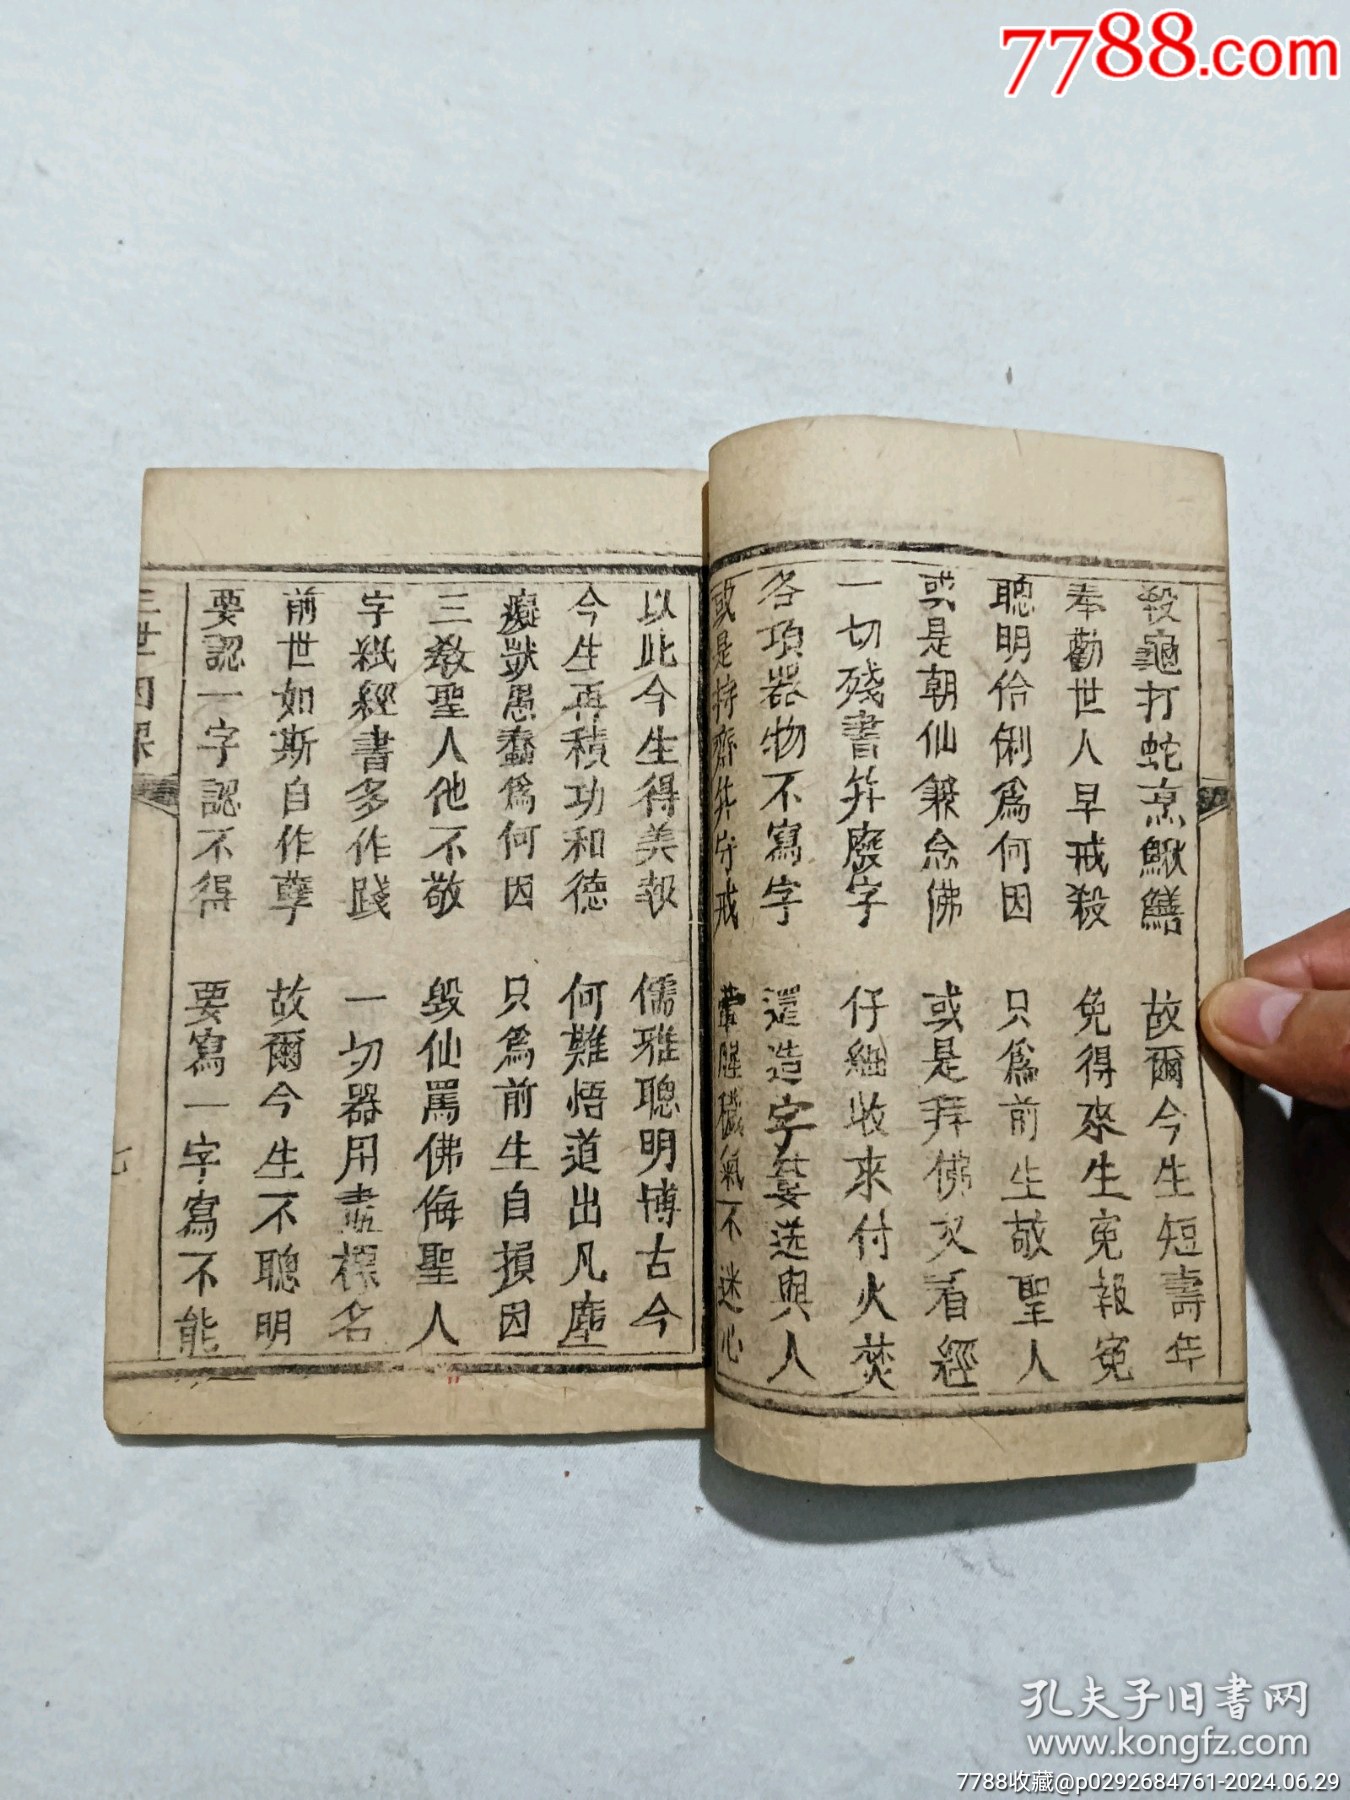 7788.com
殺龜打蛇烹鰍鱔 故爾今生短壽年
奉勸世人早戒殺 免得來生冤報冤
聰明伶俐爲何因 只爲前生敬聖人
或是朝仙兼念佛 或是拜佛又看經
一切殘書并廢字 仔細收來付火焚
各項器物不寫字 還造字簍送與人
或是持齋并守戒 葷腥穢氣不迷心
以此今生得美報 儒雅聰明博古今
今生再積功和德 何難悟道出凡塵
癡獃愚蠢爲何因 只爲前生自損因
三教聖人他不敬 毀仙罵佛侮聖人
字紙經書多作踐 一切器用畫標名
前世如斯自作孽 故爾今生不聰明
要認一字認不得 要寫一字寫不能
三世因果
七
孔夫子旧書网
www.kongfz.com
7788收藏@p0292684761-2024.06.29